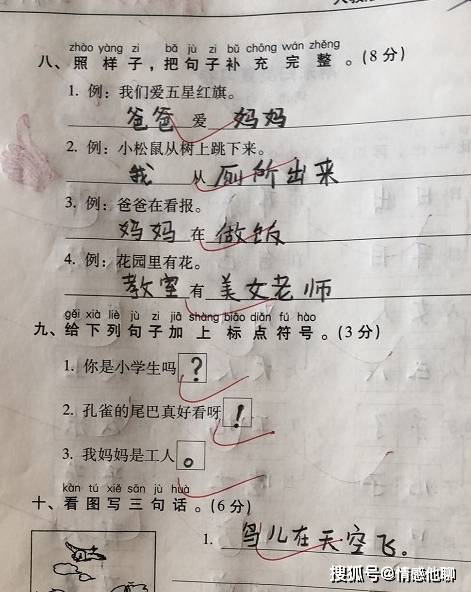 zhào yàng zi bǎ jù zi bǔ chōng wán zhěng
八、照样子，把句子补充完整。(8分)
1. 例：我们爱五星红旗。
爸爸 爱 妈妈
2. 例：小松鼠从树上跳下来。
我 从 厕所出来
3. 例：爸爸在看报。
妈妈 在 做饭
4. 例：花园里有花。
教室 有 美女老师
gěi xià liè jù zi jiā shàng biāo diǎn fú hào
九、给下列句子加上标点符号。(3分)
1. 你是小学生吗？
2. 孔雀的尾巴真好看呀！
3. 我妈妈是工人。
kàn tú xiě sān jù huà
十、看图写三句话。(6分)
1. 鸟儿在天空飞。
搜狐号@情感他聊